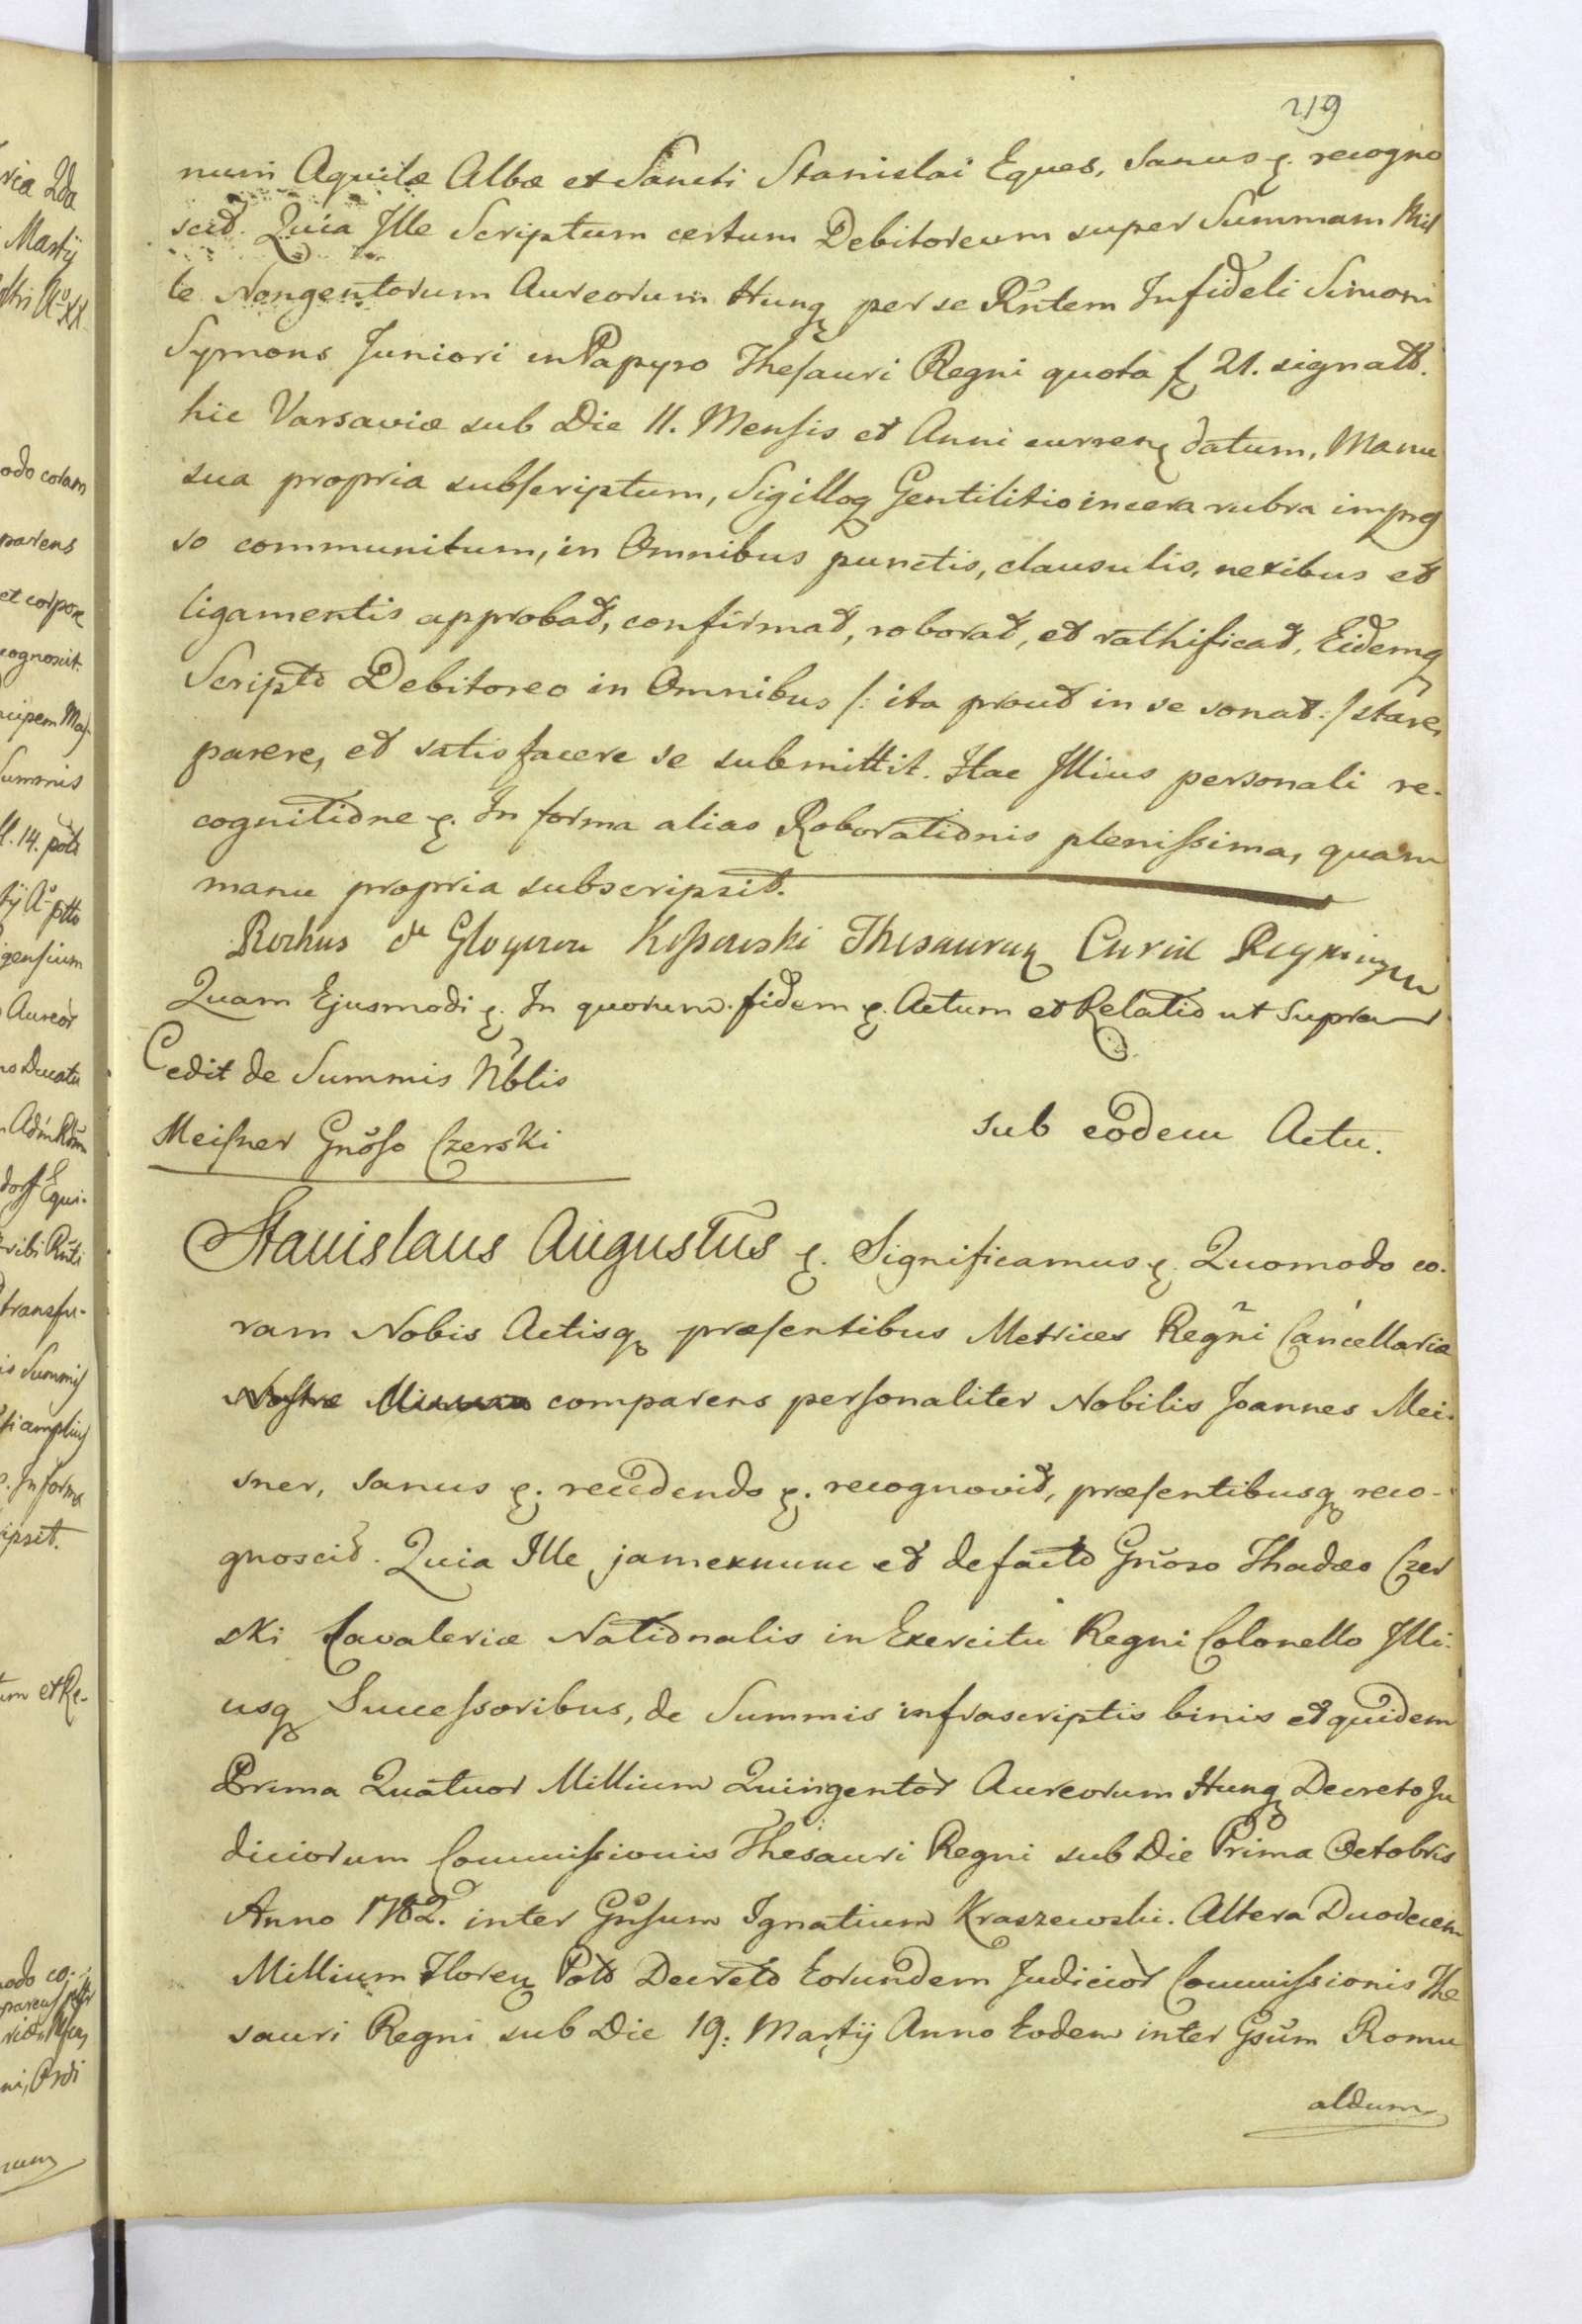 219
num Aquilæ Albæ et Sancti Stanislai Eques, Sanus ę. recogno
scit. Quia Ille Scriptum certum Debitoreum super Summam Mil
le Nongentorum Aureorum Hung per se Rntem Infideli Simoni
Symons Juniori in Papyro Thesauri Regni quota f 21. signatt.
hic Varsaviæ sub Die 11. Mensis et Anni curren datum, Manu
sua propria subscriptum, Sigilloq Gentilitio in cera rubra impreś
so communitum, in Omnibus punctis, clausulis, nexibus et
ligamentis approbat, confirmat, roborat, et rathificat, Eidemq
Scripto Debitoreo in Omnibus /: ita prout in se sonat :/ stare,
parere, et satisfacere se submittit. Hac Illius personali re-
cognitione ę. In forma alias Roborationis plenissima, quam
manu propria subscripsit.
Rochus de Kossowski Thesaurar Curiæ Regni
Quam Ejusmodi ę. In quorum fidem ę. Actum et Relatio ut Supra
Cedit de Summis Nblis
Meisner Gnoso Czerski
sub eodem Actu.
Stanislaus Augustus ę. Significamus ę. Quomodo co-
ram Nobis Actisq præsentibus Metrices Regni Cancellariæ
comparens personaliter Nobilis Joannes Mei-
sner, Sanus ę. recedendo ę. recognovit, præsentibusq reco-
gnoscit. Quia Ille jam ex nunc et de facto Gnoso Thadæo Czer
ski Cavaleriæ Nationalis in Exercitu Regni Colonello Illi-
usq Successoribus, de Summis infrascriptis binis et quidem
Prima Quatuor Millium Quingentor Aureorum Hung Decreto Ju
diciorum Commissionis Thesauri Regni sub Die Prima Octobris
Anno 1782. inter Gnsum Ignatium Kraszewski. Altera Duodecem
Millium Floren Polo Decreto Eorundem Judicior Commissionis The
sauri Regni sub Die 19. Martij Anno Eodem inter Gsum Romu
aldum